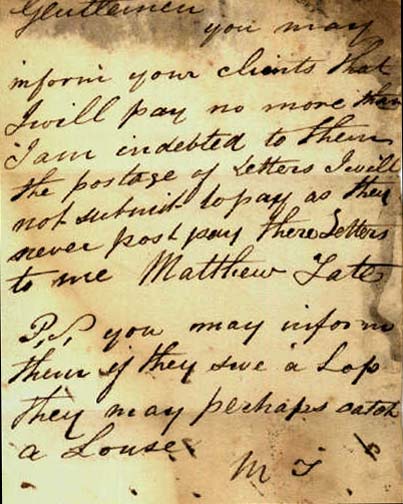 Gentlemen
you may
inform your clients that
I will pay no more than
I am indebted to them
the postage of Letters I will
not submit to pay as they
never post pay there Letters
to me Matthew Tate
P.S. you may inform
them if they sue a Lop
they may perhaps catch
a Louse
M T